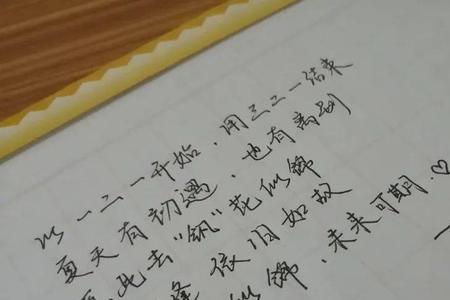 以一二一开始，用三二一结束
夏天有初遇，也有离别
此去“”花似锦
逢依旧如故
似锦，未来可期。♡